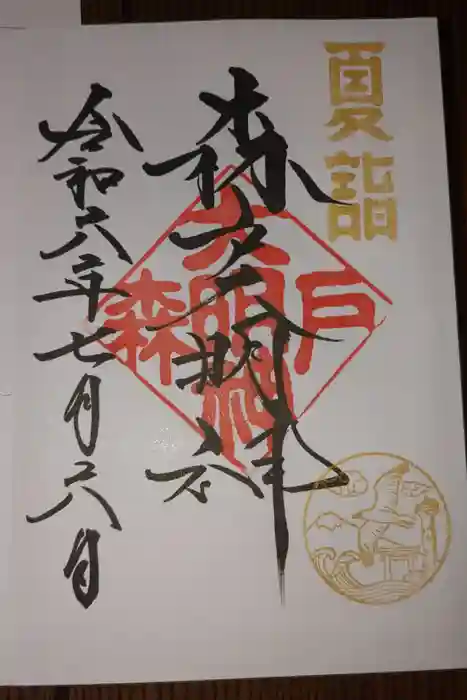 夏詣
森戸大明神
森戸大明神
令和六年七月二八日